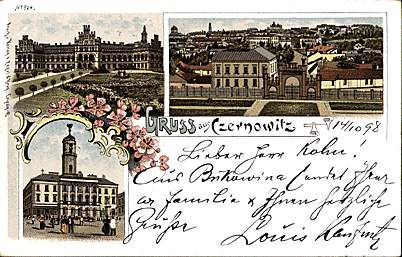 Nº 924.
Gruss aus Czernowitz
14/10 98
Lieber Herr Kohn!
Aus Bukowina sendet Ihrer
Familie & Ihnen herzliche
Grüße
Louis